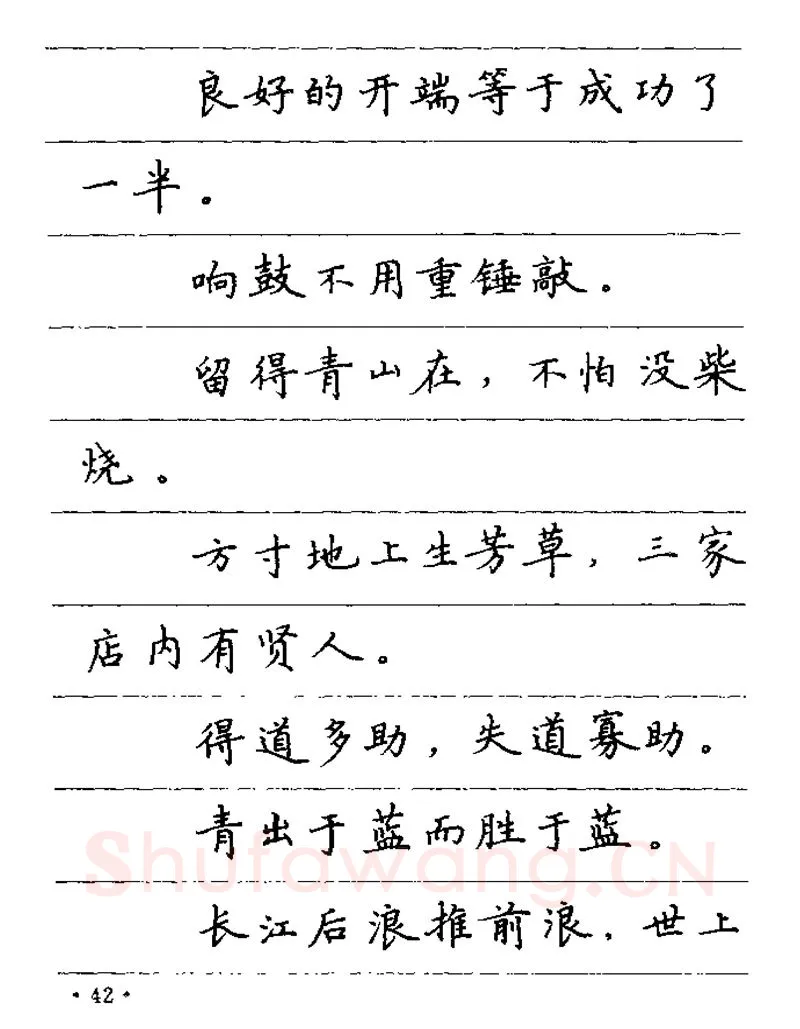 良好的开端等于成功了
一半。
响鼓不用重锤敲。
留得青山在，不怕没柴
烧。
方寸地上生芳草，三家
店内有贤人。
得道多助，失道寡助。
青出于蓝而胜于蓝。
Shufawang.CN
长江后浪推前浪，世上
·42·